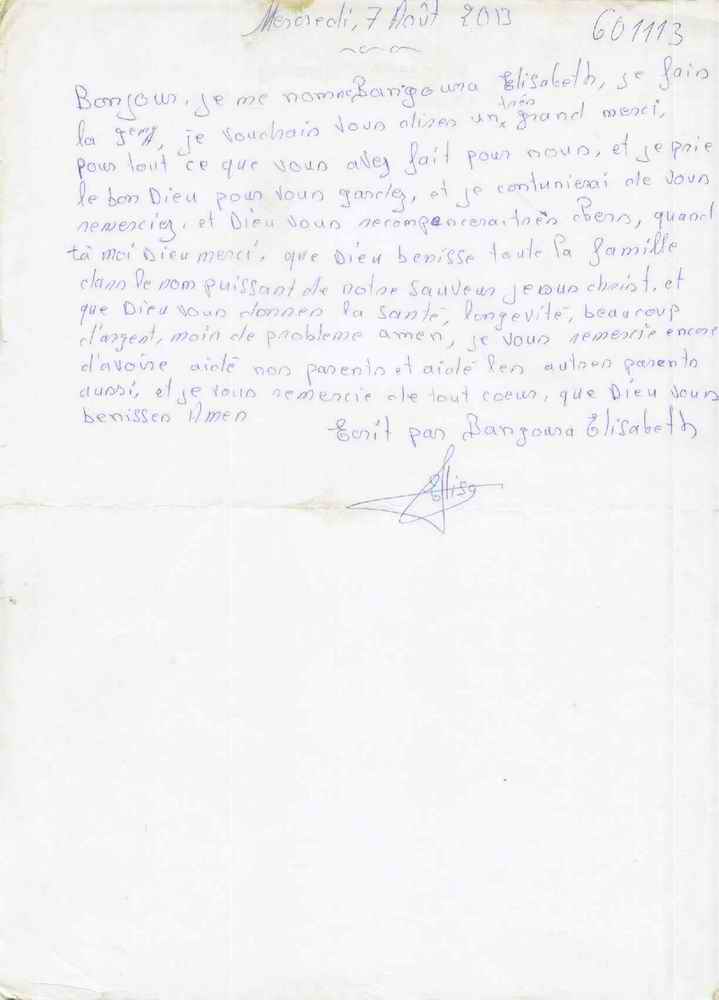 Mercredi, 7 Août 2013
601113
Bonjour, je me nomme Bangoura Elisabeth, je fais
la 9em A, je vouchais vous dires un très grand merci,
pour tout ce que vous avez fait pour nous, et je prie
le bon Dieu pour vous gardez, et je contunierai de vous
remerciez, et Dieu vous recompencerai très chers, quand
tà moi Dieu merci, que Dieu benisse toute la famille
dans le nom puissant de notre sauveur jesus christ, et
que Dieu vous donner la santé, longevité, beaucoup
d'argent, moin de probleme amen, je vous remercie encore
d'avoire aidé nos parents et aidé les autres parents
aussi, et je vous remercie de tout coeur, que Dieu vous
benisses Amen
Ecrit par Bangoura Elisabeth
Elisa